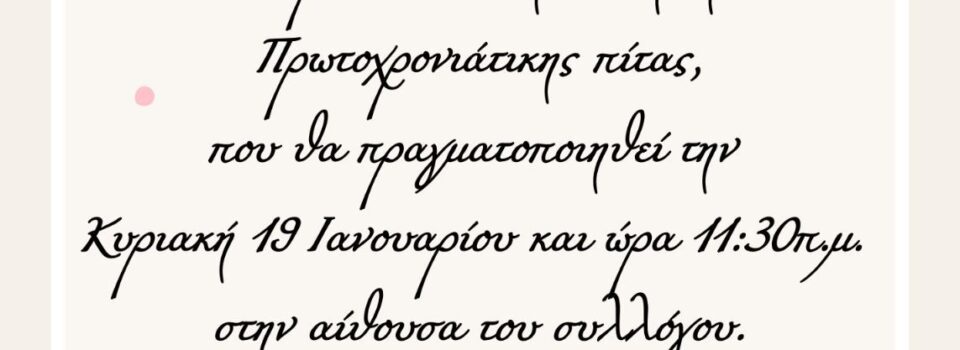 Πρωτοχρονιάτικης πίτας,
που θα πραγματοποιηθεί την
Κυριακή 19 Ιανουαρίου και ώρα 11:30π.μ.
στην αίθουσα του συλλόγου.